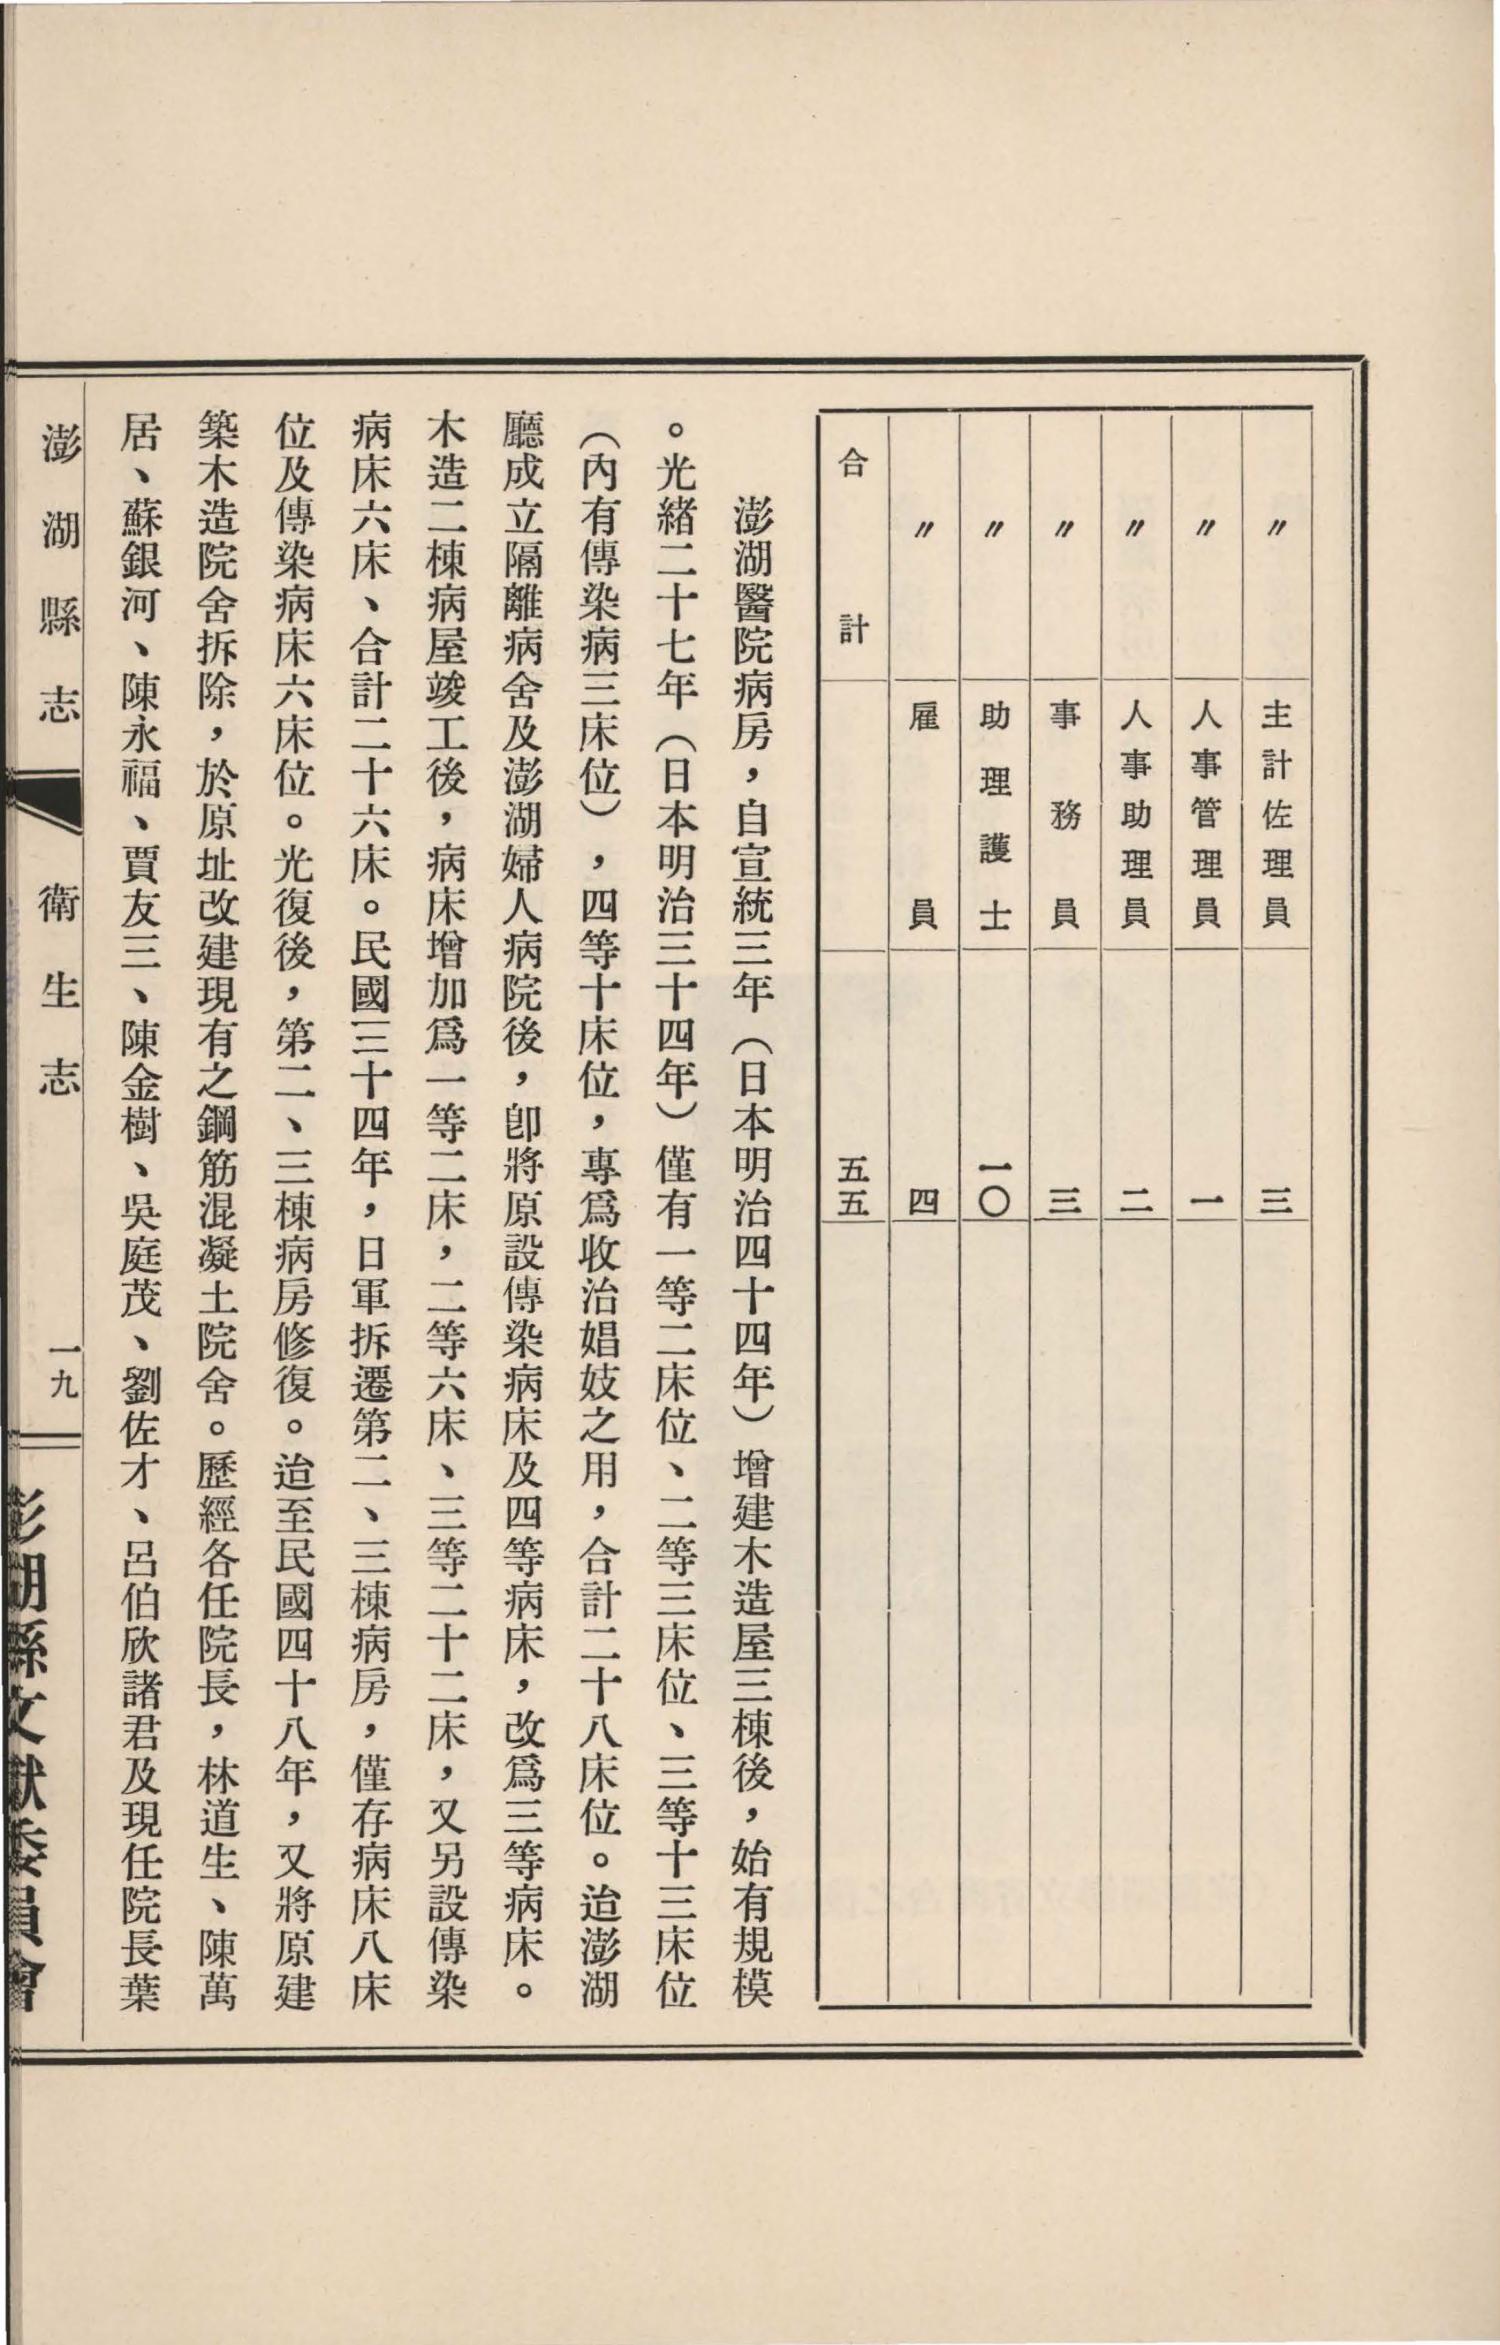 〃 主計佐理員 三
〃 人事管理員 一
〃 人事助理員 二
〃 事務員 三
〃 助理護士 一〇
〃 雇員 四
合計 五五
澎湖醫院病房，自宣統三年（日本明治四十四年）增建木造屋三棟後，始有規模
。光緒二十七年（日本明治三十四年）僅有一等二床位、二等三床位、三等十三床位
（內有傳染病三床位），四等十床位，專爲收治娼妓之用，合計二十八床位。迨澎湖
廳成立隔離病舍及澎湖婦人病院後，卽將原設傳染病床及四等病床，改爲三等病床。
木造二棟病屋竣工後，病床增加爲一等二床，二等六床、三等二十二床，又另設傳染
病床六床、合計二十六床。民國三十四年，日軍拆遷第二、三棟病房，僅存病床八床
位及傳染病床六床位。光復後，第二、三棟病房修復。迨至民國四十八年，又將原建
築木造院舍拆除，於原址改建現有之鋼筋混凝土院舍。歷經各任院長，林道生、陳萬
居、蘇銀河、陳永福、賈友三、陳金樹、吳庭茂、劉佐才、呂伯欣諸君及現任院長葉
澎湖縣志 衛生志 一九
澎湖縣文獻委員會